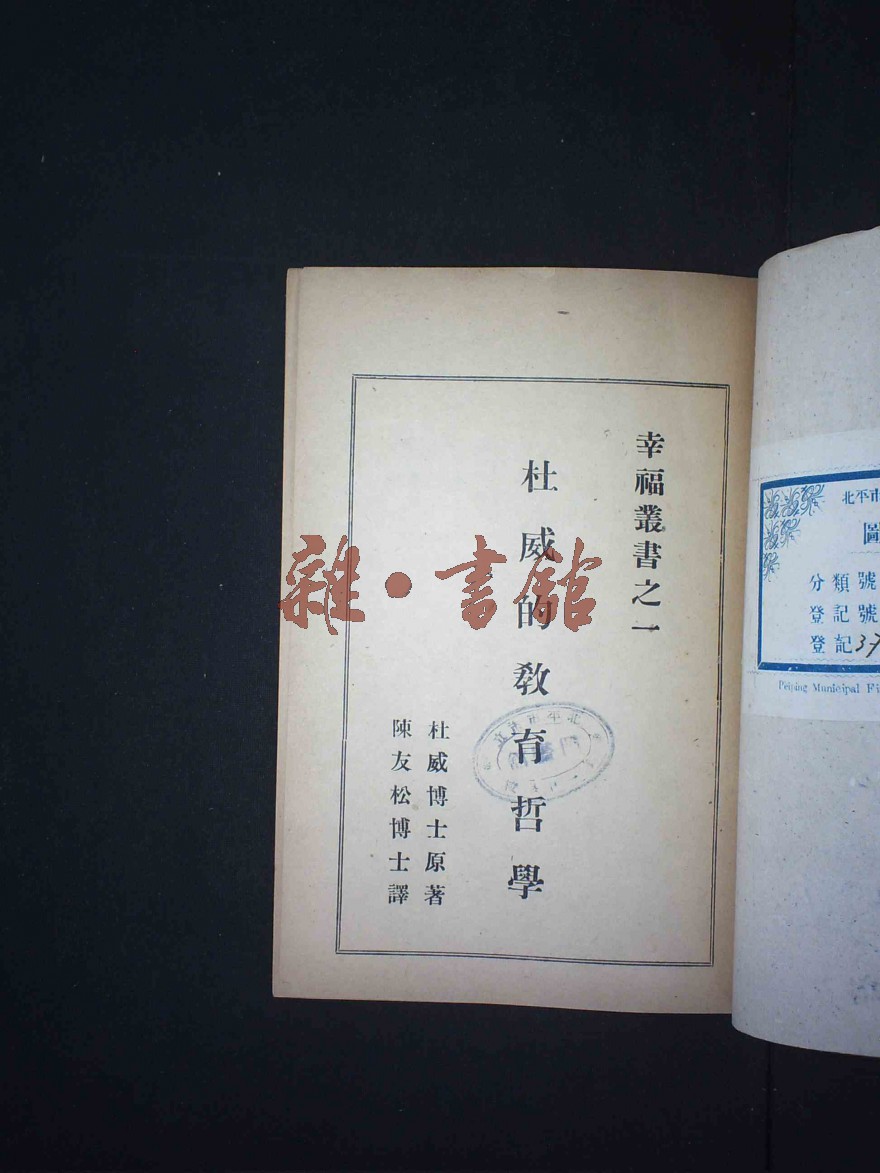 幸福叢書之一
杜威的教育哲學
杜威博士原著
陳友松博士譯
雜·書館
北平市
圖
分類號
登記號
登記37
Peiping Municipal Fi